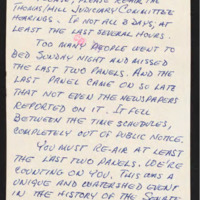 PLEASE RE-AIR THE
THOMAS/HILL JUDICIARY COMMITTEE
HEARINGS. IF NOT ALL 3 DAYS, AT
LEAST THE LAST SEVERAL HOURS.
TOO MANY PEOPLE WENT TO
BED SUNDAY NIGHT AND MISSED
THE LAST TWO PANELS. AND THE
LAST PANEL CAME ON SO LATE
THAT NOT EVEN THE NEWSPAPERS
REPORTED ON IT. IT FELL
BETWEEN THE TIME SCHEDULES,
COMPLETELY OUT OF PUBLIC NOTICE.
YOU MUST RE-AIR AT LEAST
THE LAST TWO PANELS. WE'RE
COUNTING ON YOU. THIS WAS A
UNIQUE AND WATERSHED EVENT
IN THE HISTORY OF THE SENATE